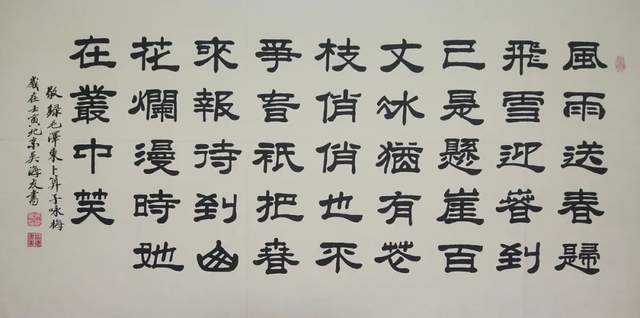 風雨送春歸
飛雪迎春到
已是懸崖百
丈冰猶有花
枝俏俏也不
爭春祇把春
來報待到山
花爛漫時她
在叢中笑
敬録毛澤東卜算子咏梅
歲在壬寅北京吴海友書